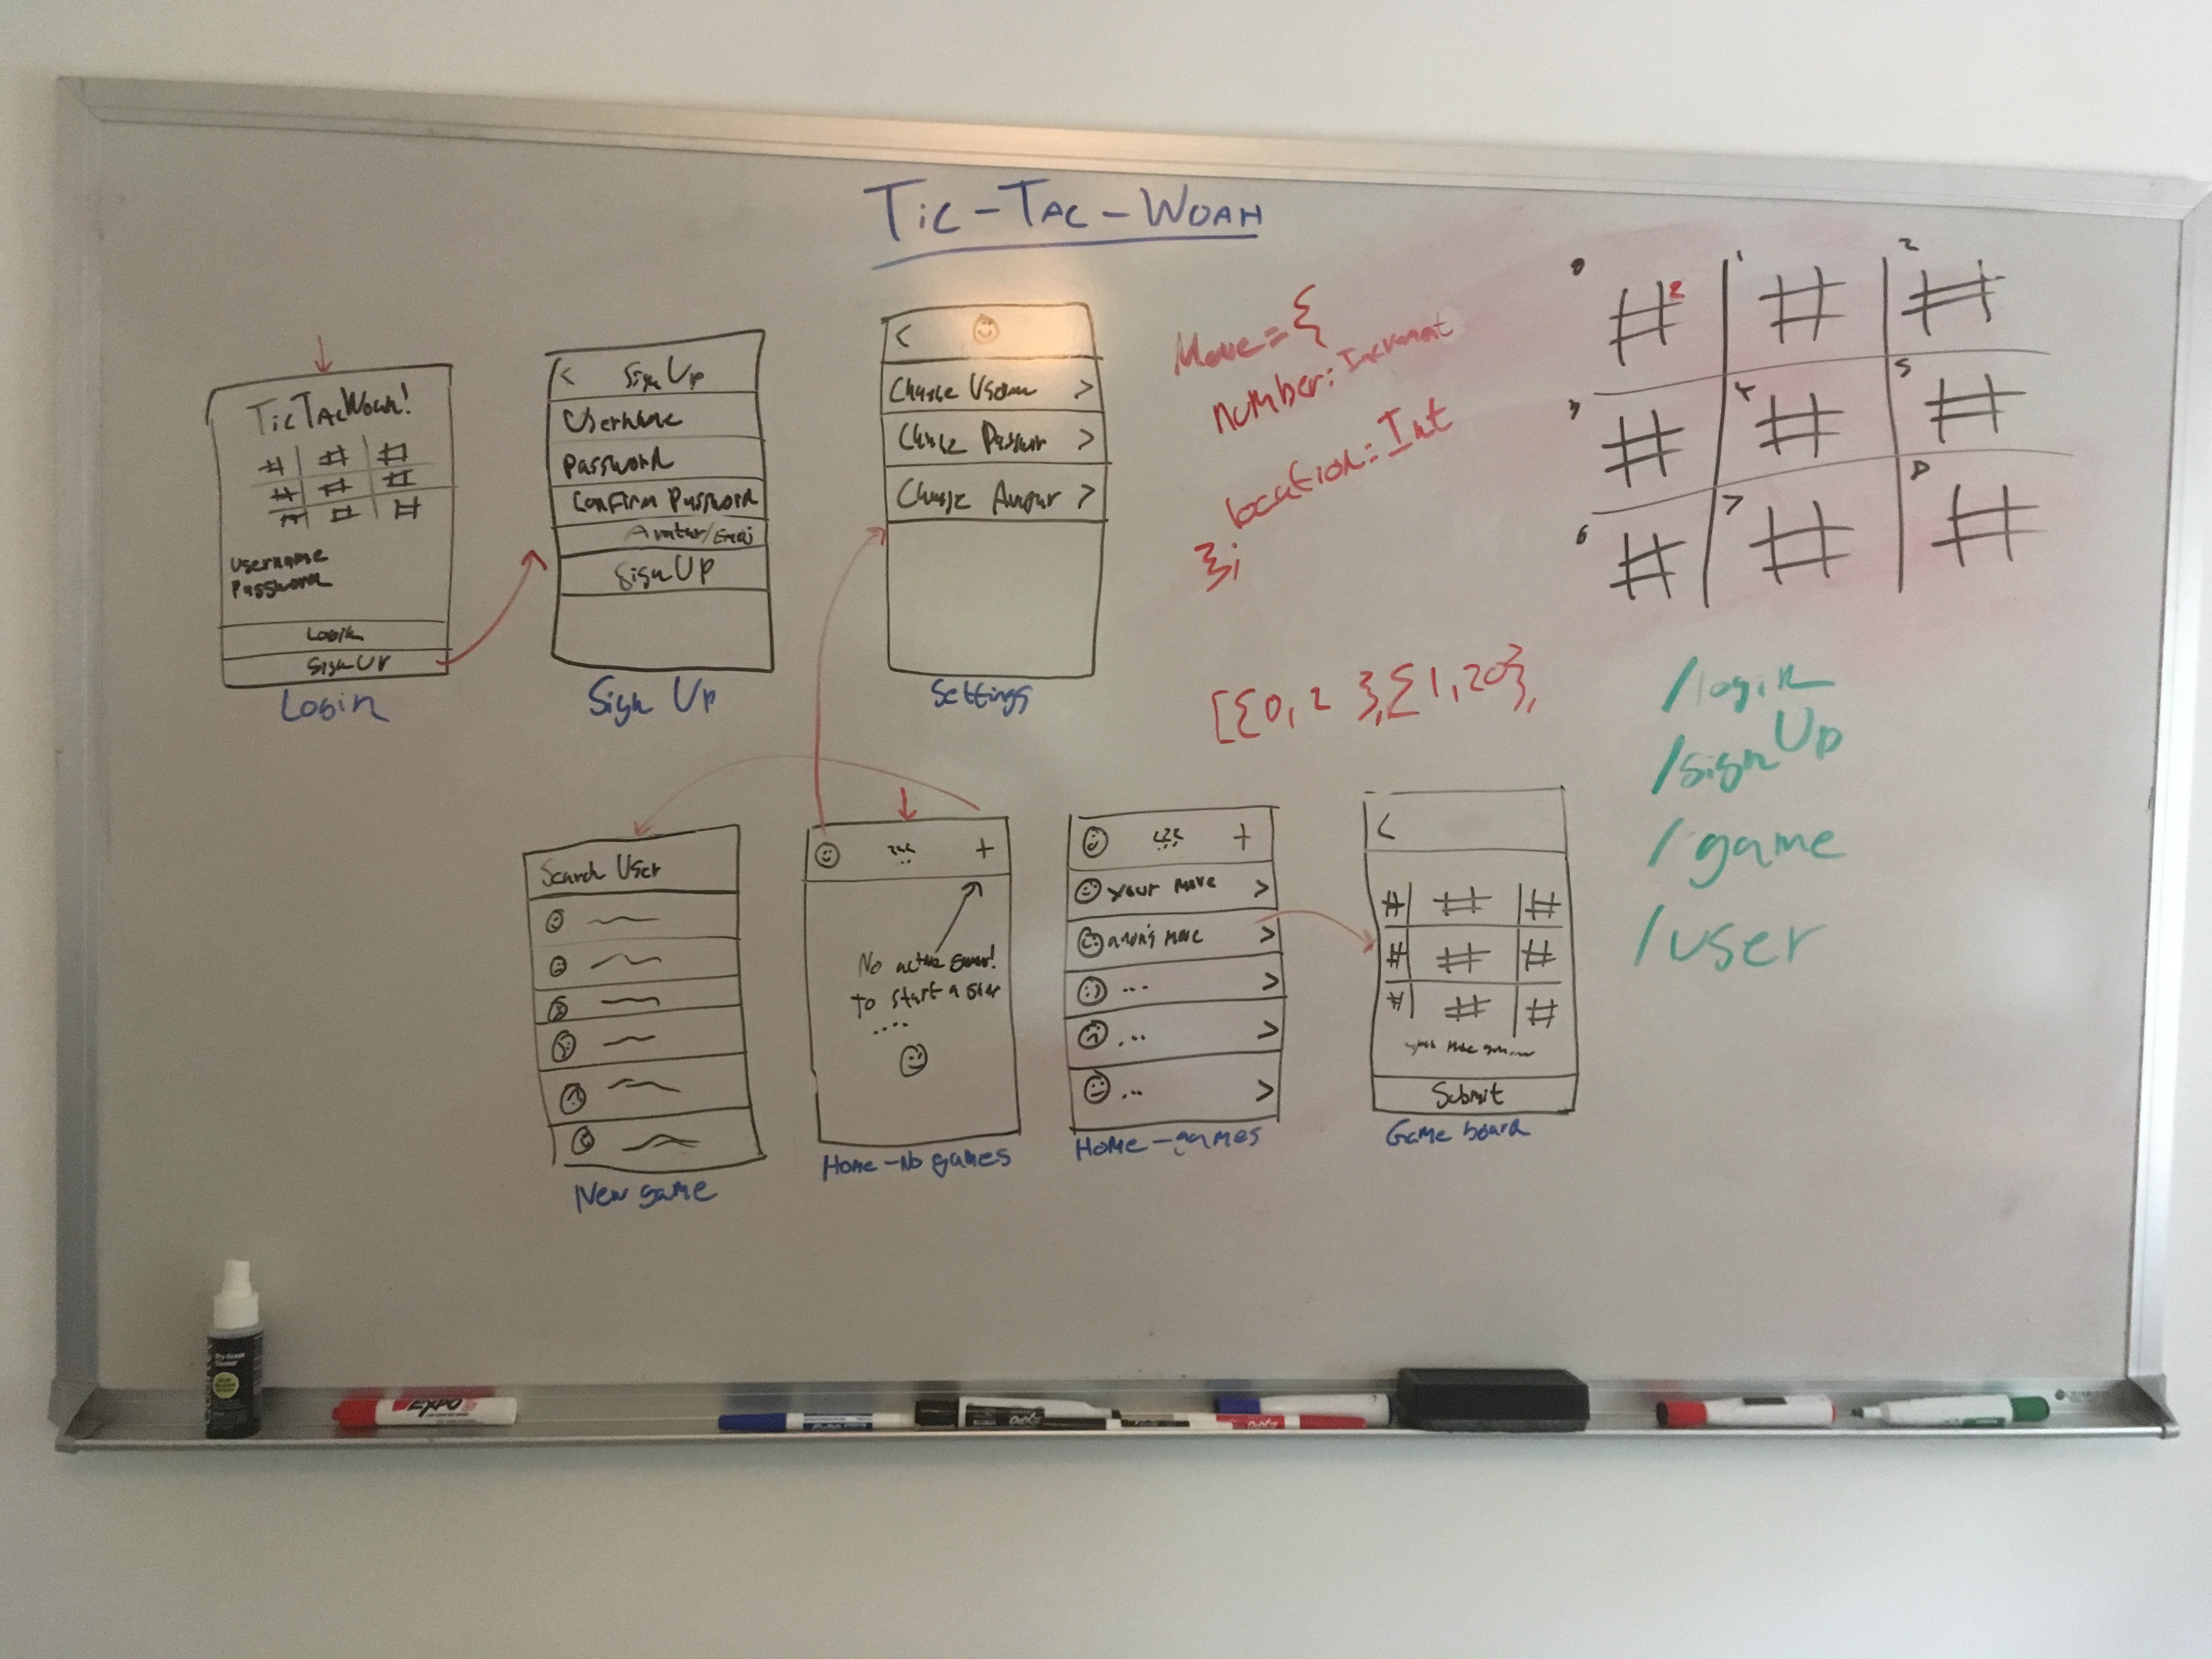 TIC-TAC-WOAH
TIC TAC WOAH!
Username
Password
Login
Sign Up
Login
< Sign Up
Username
Password
Confirm Password
Avatar/Emoji
Sign Up
Sign Up
<
Change >
Change >
Change >
Settings
Move = {
number: Increment
location: Int
};
[{0, 2 }, { 1, 20},
0 1 2
2
3 4 5
6 7 8
/login
/signUp
/game
/user
Search User
New game
+
No active
to start a
....
Home - No games
+
your move >
move >
... >
... >
... >
Home - games
<
Submit
Game board
EXPO